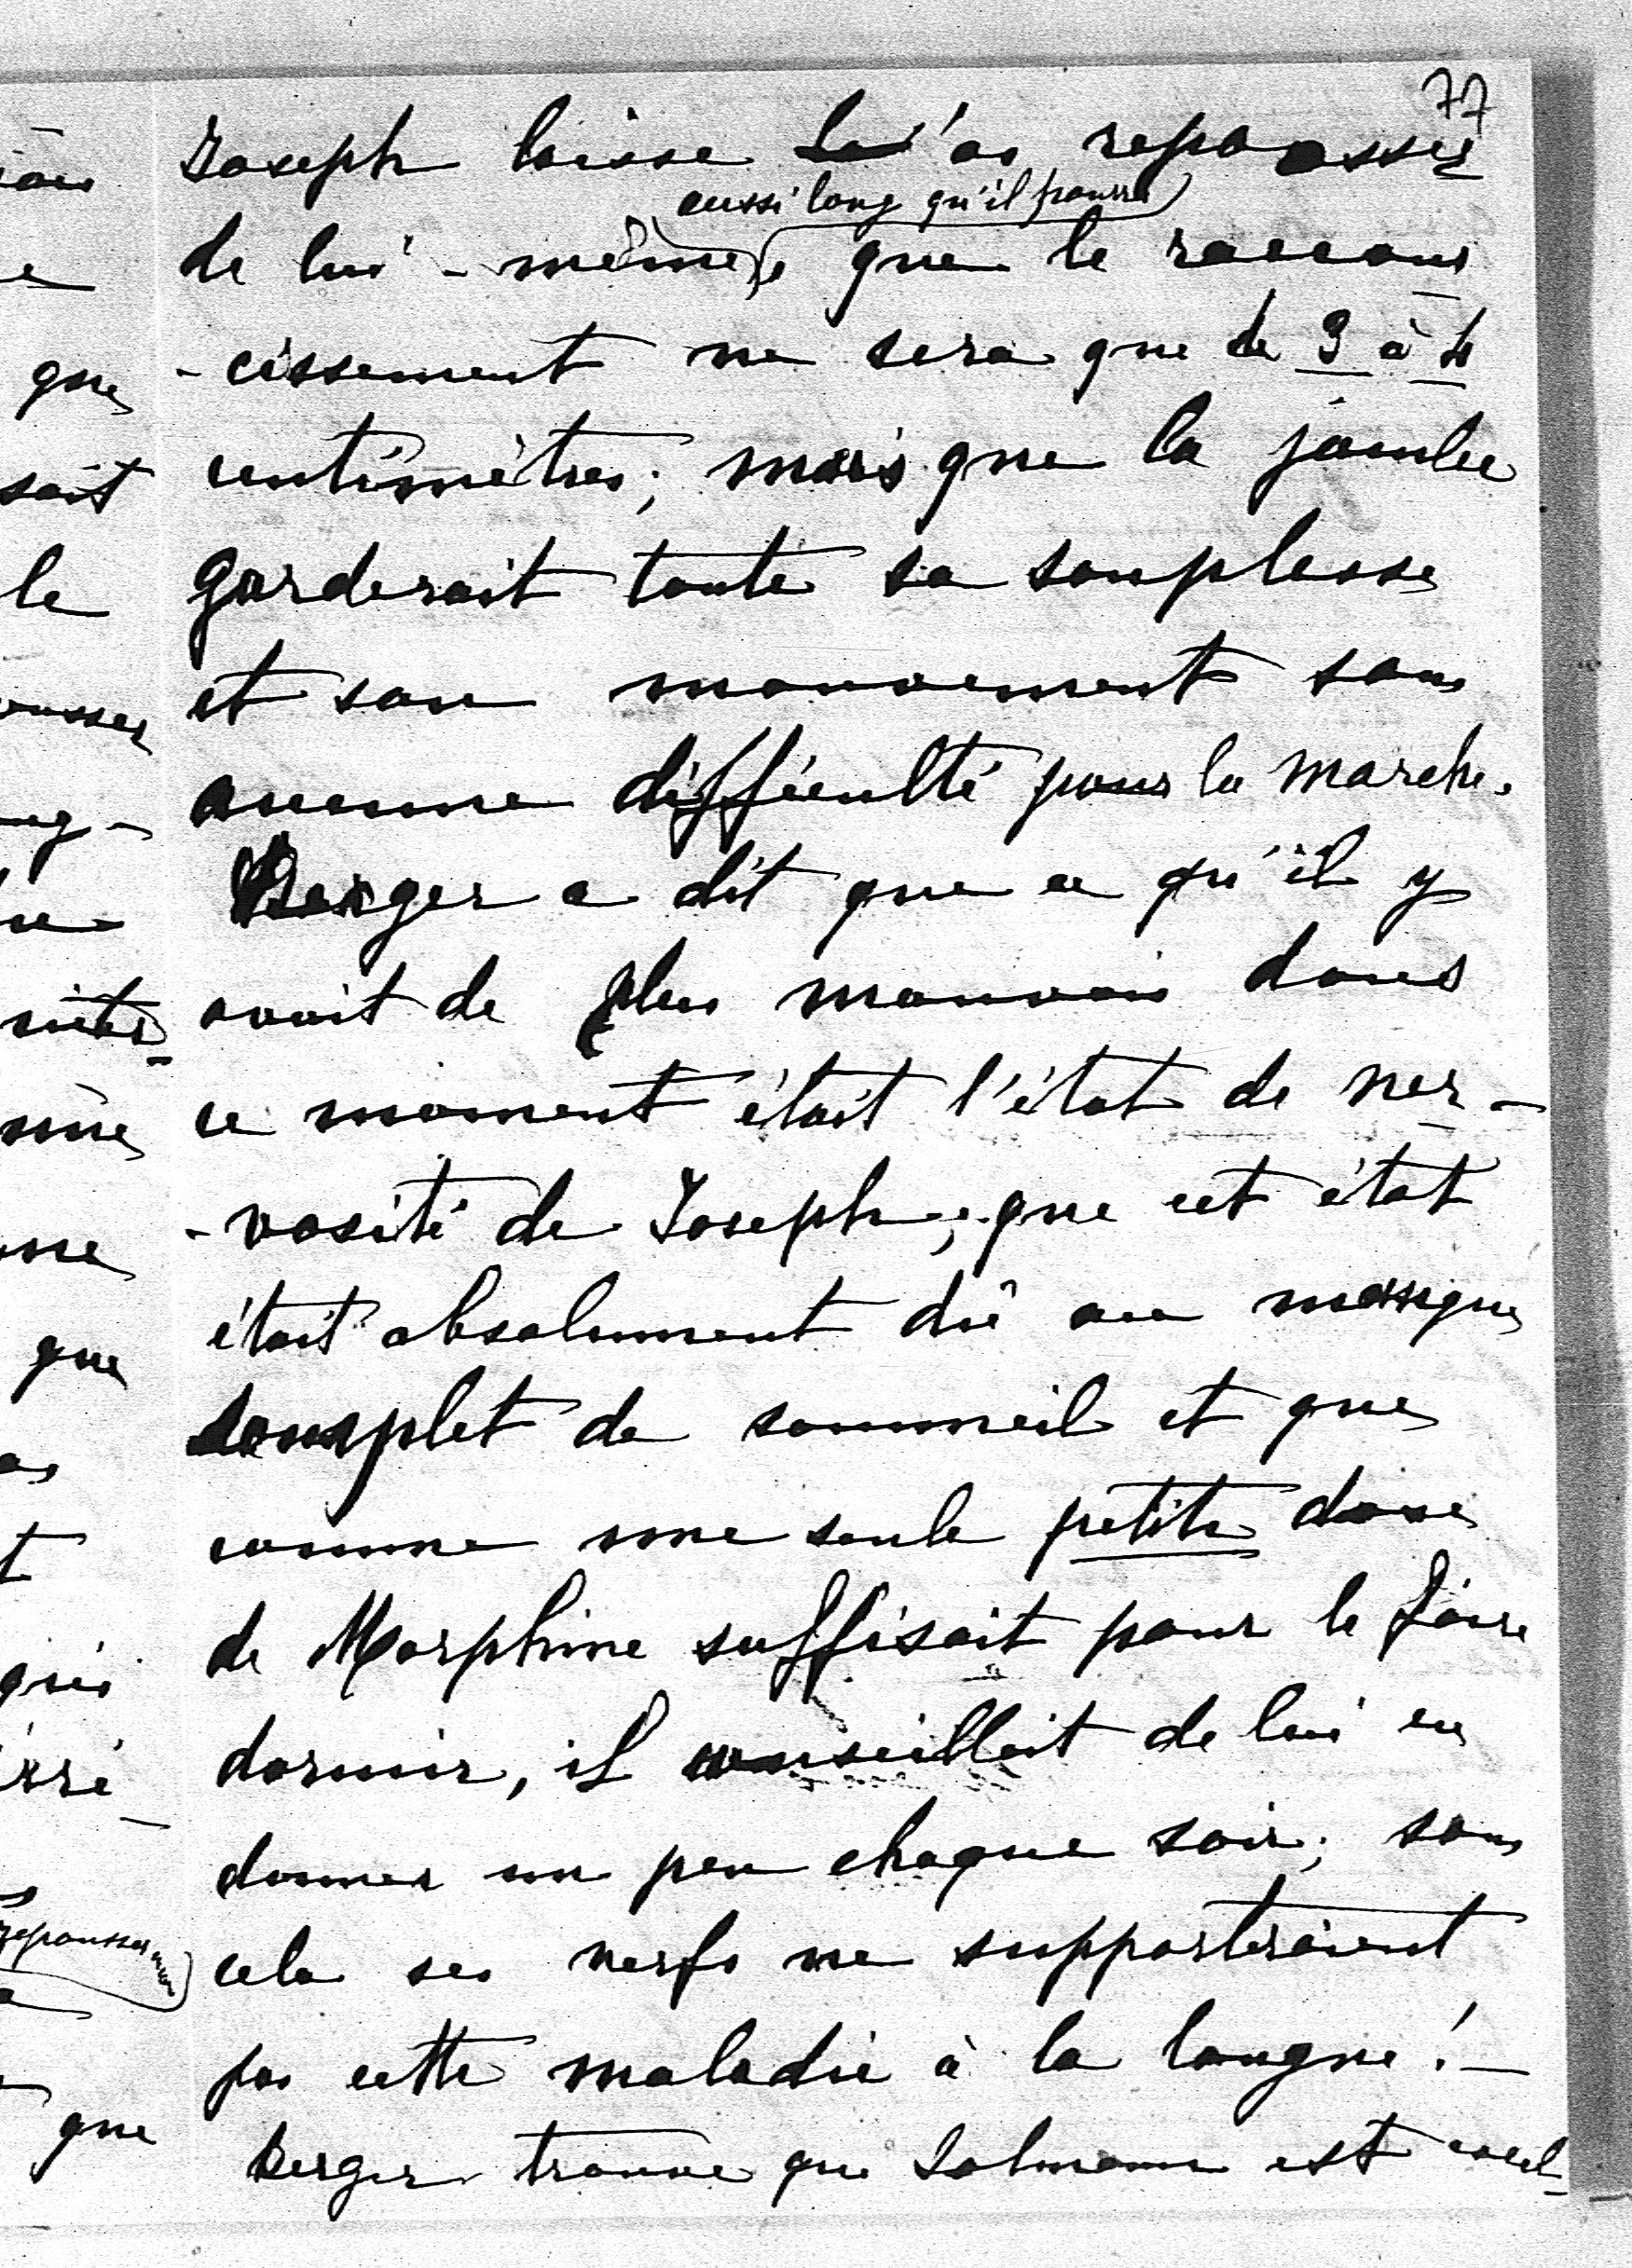 77
Joseph laisse l'os repousser
aussi long qu'il pourra
de lui-même, que le raccour
-cissement ne sera que de 3 à 4
centimètres; mais que la jambe
garderait toute sa souplesse
et son mouvement sans
aucune difficulté pour la marche.
Berger a dit que ce qu'il y
avait de plus mauvais dans
ce moment était l'état de ner-
-vosité de Joseph; que cet état
était absolument dû au manque
complet de sommeil et que
comme une seule petite dose
de Morphine suffisait pour le faire
dormir, il conseillait de lui en
donner un peu chaque soir; sans
cela ses nerfs ne supporteraient
pas cette maladie à la longue!-
Berger trouve que est
que
soit
le
ousser
que
qui
repousser
que